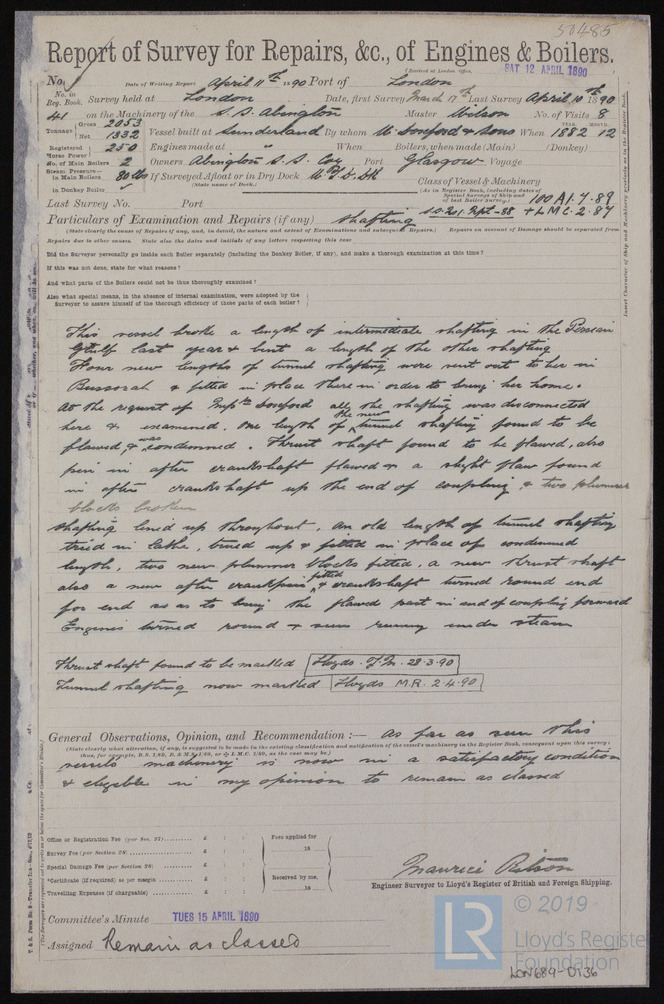 50485
Report of Survey for Repairs, &c., of Engines & Boilers.
(Received at London Office,
SAT 12 APRIL 1890
No. Date of Writing Report April 11th 1890 Port of London
No. in Reg. Book. Survey held at London Date, first Survey March 17th Last Survey April 10th 1890
41 on the Machinery of the S.S. Abington Master Wilson No. of Visits 8
Tonnage Gross 2053 Net 1332 Vessel built at Sunderland By whom W Doxford & Sons When 1882 12
YEAR. MONTH.
Registered Horse Power 250 Engines made at " When Boilers, when made (Main) (Donkey)
No. of Main Boilers 2 Owners Abington S.S. Coy Port Glasgow Voyage
Steam Pressure in Main Boilers 80 lbs If Surveyed Afloat or in Dry Dock
(State name of Dock.)
in Donkey Boiler
Class of Vessel & Machinery
(As in Register Book, including dates of Special Surveys of Ship and of last Boiler Survey.)
100 A1. 4.89
Last Survey No. Port
+LMC. 2.87
Particulars of Examination and Repairs (if any) Shafting
(State clearly the cause of Repairs if any, and, in detail, the nature and extent of Examinations and subsequent Repairs.) Repairs on account of Damage should be separated from
Repairs due to other causes. State also the dates and initials of any letters respecting this case
Did the Surveyor personally go inside each Boiler separately (including the Donkey Boiler, if any), and make a thorough examination at this time?
If this was not done, state for what reasons?
And what parts of the Boilers could not be thus thoroughly examined?
Also what special means, in the absence of internal examination, were adopted by the
Surveyor to assure himself of the thorough efficiency of those parts of each boiler?
This vessel broke a length of intermediate shafting in the Persian
Gulf last year & bent a length of the other shafting
Four new lengths of tunnel shafting were sent out to her in
Bussorah & fitted in place there in order to bring her home.
At the request of Doxford all the shafting was disconnected
here & examined. One length of the new tunnel shafting found to be
flawed & was condemned. Thrust shaft found to be flawed, also
pin in after crankshaft flawed & a slight flaw found
in after crankshaft up the end of coupling & two plummer
blocks broken
Shafting lined up throughout, an old length of tunnel shafting
tried in lathe, trued up & fitted in place of condemned
length, two new plummer blocks fitted, a new thrust shaft
also a new after crankpin fitted & crankshaft turned round end
for end so as to bring the flawed part in end of coupling forward
Engines turned round & seen running under steam
Thrust shaft found to be marked Lloyds. J.M. 28.3.90
Tunnel shafting now marked Lloyds M.R. 2.4.90
General Observations, Opinion, and Recommendation :— As far as seen this
(State clearly what alteration, if any, is suggested to be made in the existing classification and notification of the vessel's machinery in the Register Book, consequent upon this survey:
vessels machinery is now in a satisfactory condition
& eligible in my opinion to remain as classed
Office or Registration Fee (per Sec. 27) £ : : Fees applied for
Survey Fee (per Section 28) £ : : 18
Special Damage Fee (per Section 28) £ : :
*Certificate (if required) as per margin £ : : Received by me,
Travelling Expenses (if chargeable) £ : : 18
Maurice Ritson
Engineer Surveyor to Lloyd's Register of British and Foreign Shipping.
Committee's Minute TUES 15 APRIL 1890
Assigned Remain as classed
© 2019
LR
Lloyd's Register
Foundation
LON689-0136